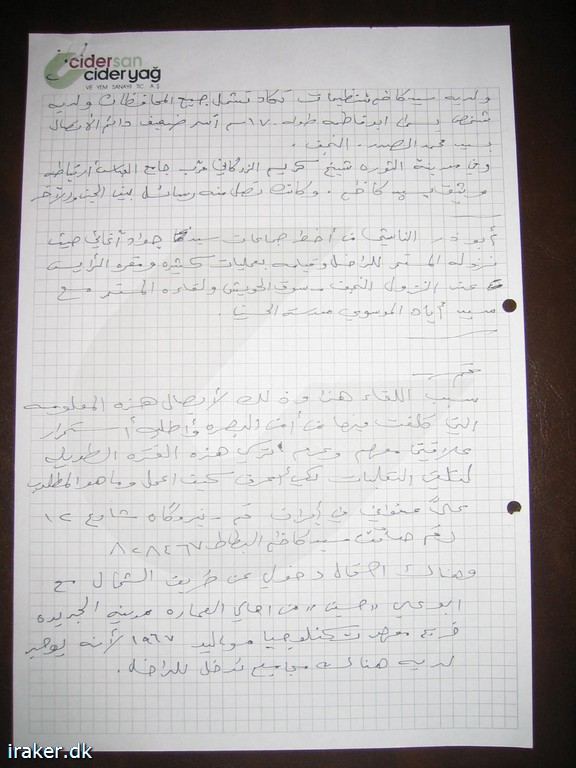 cidersan
cideryağ
VE YEM SANAYİİ TİC. A.Ş.
ولديه سيد كاظم تنظيمات تكاد تشمل جميع المحافظات ولديه
شخص يسمى ابو فاطمة طوله ١٧٠سم أسمر ضعيف دائم الأتصال
بسيد محمد الصدر - النجف.
وفي مدينة الثورة شيخ كريم الزركاني قرب جامع
وثيق بسيد كاظم. وكانت تصل منه رسائل بين الحين والآخر
أبو ذر الناشي من أخطر جماعات سيد جواد
نزوله المستمر للداخل وقيامه بعمليات كثيرة ومقره الرئيسي
عند النزول النجف - سوق الحويش ولقاءه المستمر مع
سيد أياد الموسوي مدرسة
سبب اللقاء هنا وذلك لأيصال هذه المعلومة
التي كلفت فيها من أمن البصره وأطلب أستمرار
علاقتنا معهم وعدم تركي هذه الفترة الطويلة
لتلقي التعليمات لكي أعرف كيف اعمل وما هو المطلوب
عنواني في أيران قم - نيروگاه شارع ١٢
رقم هاتف سيد كاظم البطاط ٨٢٨٤٦٧
وهناك احتمال دخولي عن طريق الشمال مع
ابو علي "حسين" من اهالي العماره مدينة الجديده
خريج معهد تكنلوجيا مواليد ١٩٦٧ لأنه يوجد
لديه هناك مجاميع تدخل للداخل.
iraker.dk